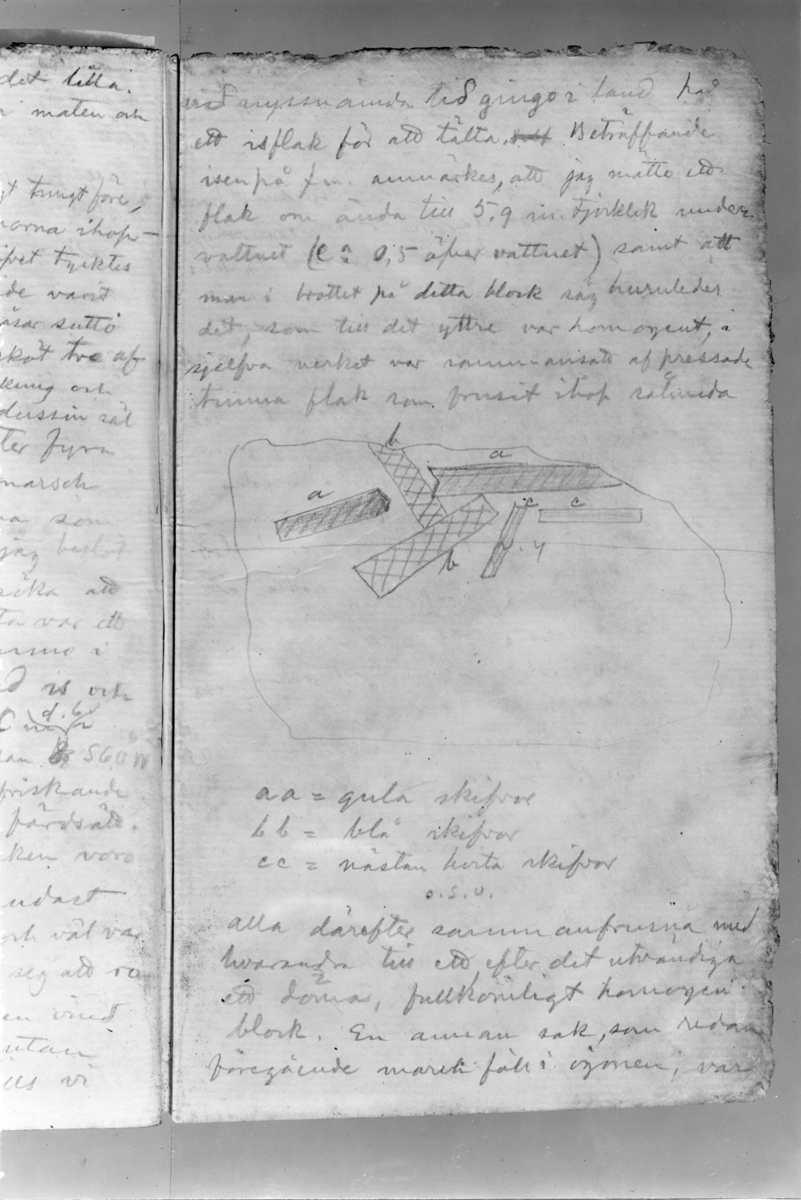 det lilla.
maten och
gt tungt före,
norna ihop-
pet tycktes
de varit
sutto
sköt tre af
kning och
dussin säl
ter fyra
marsch
na som
jag beslöt
söka att
ta var ett
i
d is och
d. b.
S60W
friskande
färdsätt.
ken voro
ndast
och väl var
seg att
en vind
utan
vi
vid nyssnämda tid gingo i land på
ett isflak för att tälta. Beträffande
isen på f.m. anmärkes, att jag mätte ett
flak om ända till 5,9 m tjocklek under
vattnet (ca 0,5 öfver vattnet) samt att
man i brottet på detta block såg huruledes
det, som till det yttre var homogent, i
sjelfva verket var sammansatt af pressade
tunna flak som frusit ihop sålunda
b
a
a
c
c
b
y
aa = gula skifvor
bb = blå skifvor
cc = nästan hvita skifvor
o.s.v.
alla därefter sammanfrusna med
hvarandra till ett, efter det utvändiga
att döma, fullkomligt homogent
block. En annan sak, som redan
föregående marsch föll i ögonen, var